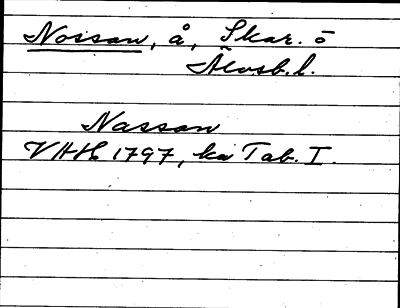 Nossan, å, Skar. o
Älvsb. l.
Nassan
VAH 1797, ka Tab. I.